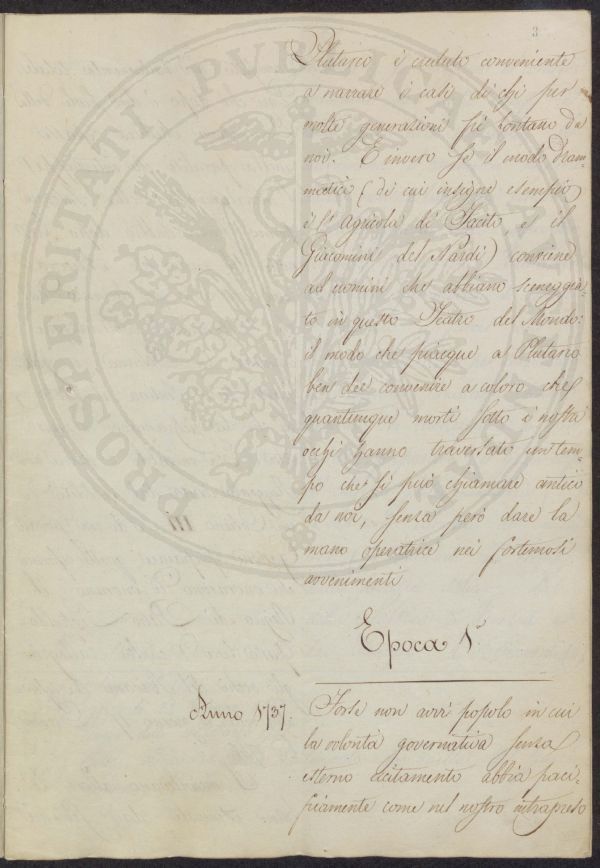 3
Plutarco è creduto conveniente
a narrare i casi di chi per
molte generazioni fù lontano da
noi. E invero se il modo Dram-
matico (di cui insigne esempio
è l'Agricola di Tacito, e il
Giacomini del Nardi) conviene
ad uomini che abbiano sceneggia-
to in questo Teatro del Mondo:
il modo che piacque a Plutarco
ben dee convenire a coloro che
quantunque morti sotto i nostri
occhj hanno traversato un tem-
po che si può chiamare antico
da noi, senza però dare la
mano operatrice nei fortunosi
avvenimenti
Epoca 1ª
Anno 1737.
Forse non avvi popolo in cui
la volontà governativa senza
esterno eccitamento abbia paci-
ficamente come nel nostro intrapreso
PROSPERITATI PVBLICAE